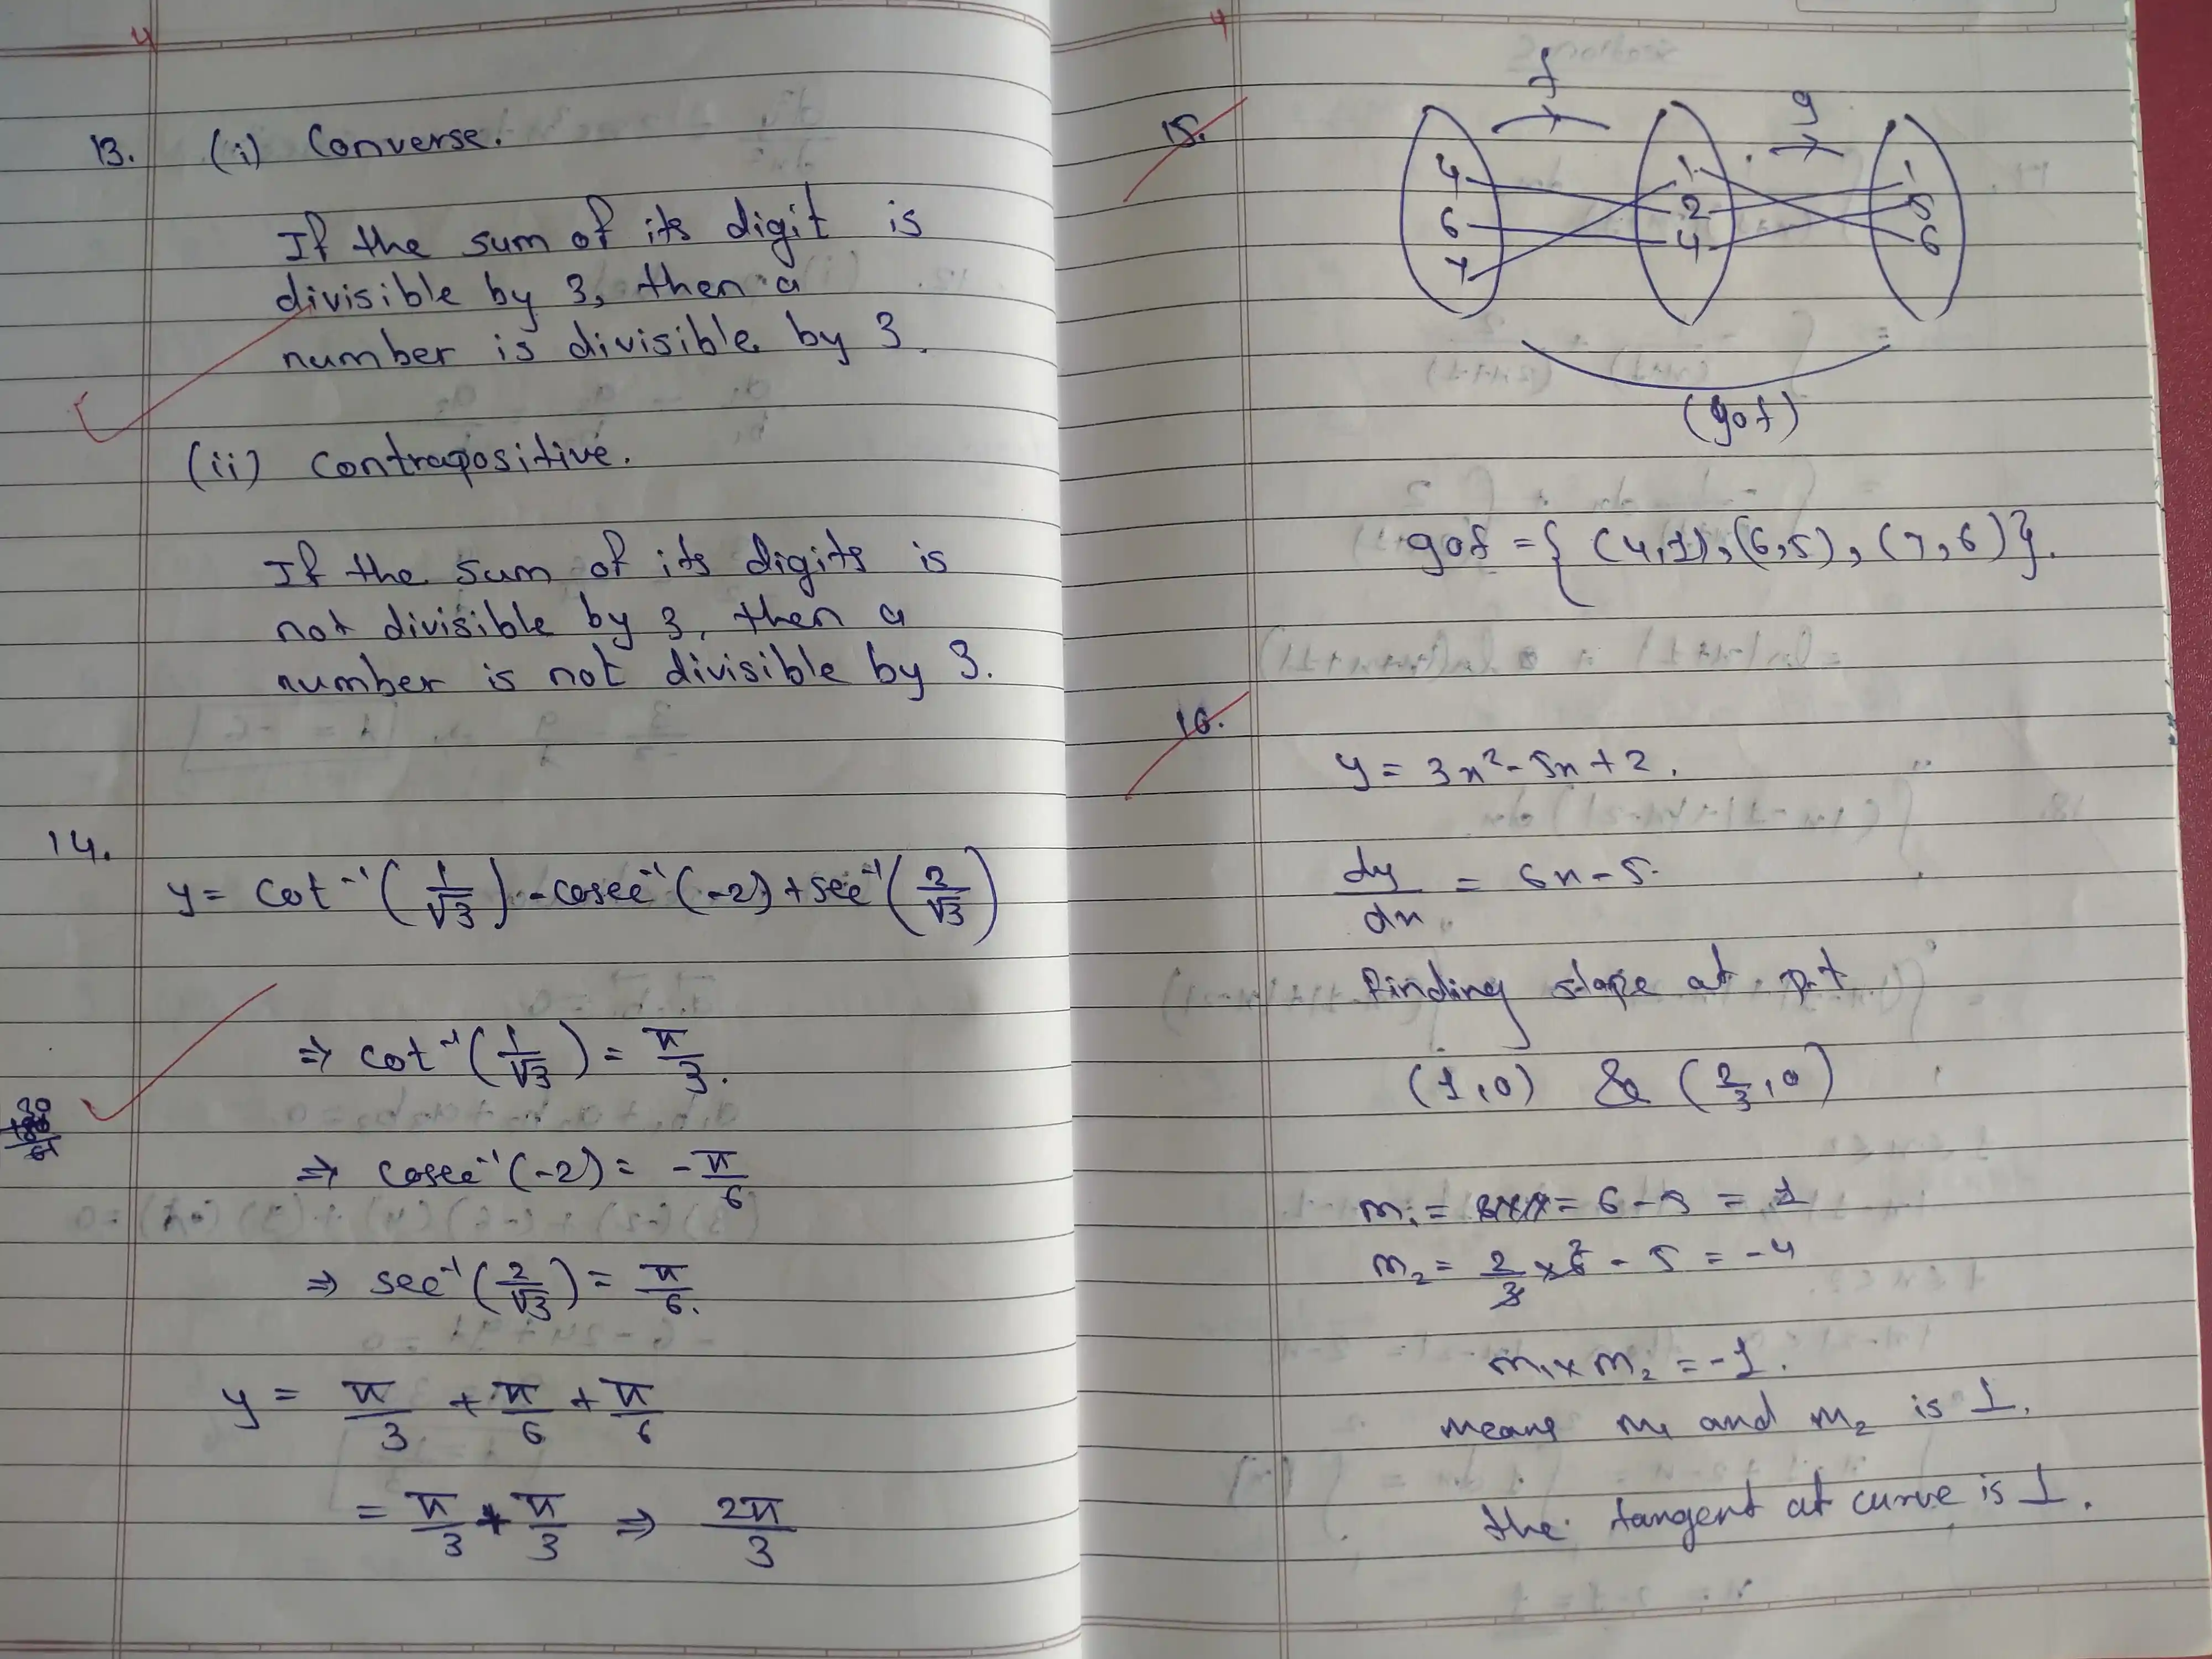 4
13. (i) Converse.
If the sum of its digit is
divisible by 3, then a
number is divisible by 3.
(ii) Contrapositive.
If the sum of its digits is
not divisible by 3, then a
number is not divisible by 3.
14.
y = cot⁻¹(1/√3) - cosec⁻¹(-2) + sec⁻¹(2/√3)
⇒ cot⁻¹(1/√3) = π/3.
⇒ cosec⁻¹(-2) = -π/6
⇒ sec⁻¹(2/√3) = π/6.
y = π/3 + π/6 + π/6
= π/3 + π/3 ⇒ 2π/3
4
15.
f g
4 1 1
6 2 5
7 4 6
(gof)
gof = { (4,1), (6,5), (7,6)}.
16.
y = 3x² - 5x + 2.
dy/dx = 6x - 5.
finding slope at pt
(1,0) & (2/3,0)
m₁ = = 6 - 5 = 1
m₂ = 2/3 × 6 - 5 = -4
m₁ × m₂ = -1.
means m₁ and m₂ is 1.
the tangent at curve is 1.